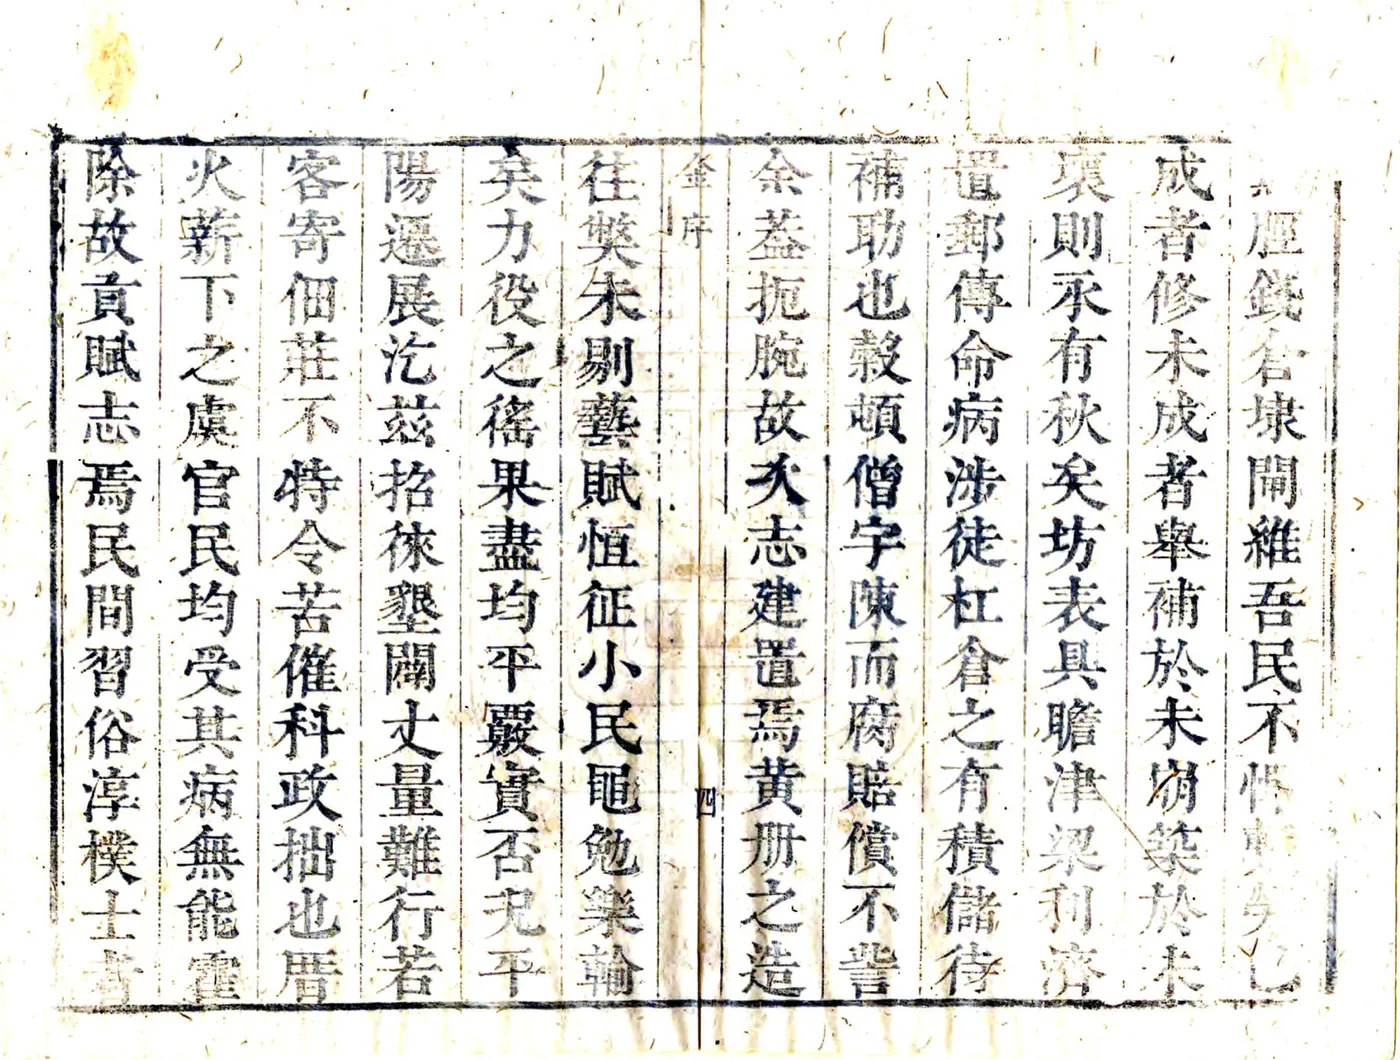 脛錢名埭閘維吾民不
成者修未成者舉補於未崩築於未
壞則永有秋矣坊表具瞻津梁利濟
置郵傳命病涉徒杠倉之有積儲待
補助也穀頓僧字陳而腐賠償不訾
余葢扼腕故夂志建置焉黃册之造
金序
四
往獘未剔藝賦恒征小民黽勉樂輸
矣力役之徭果盡均平覈實否況平
陽遷展汔兹招徠墾闢丈量難行若
客寄佃莊不特令苦催科政拙也厝
火薪下之虞官民均受其病無能霍
除故貢賦志焉民間習俗淳樸士者